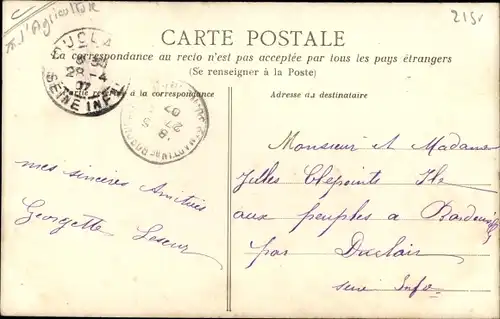 l'Agriculture
215r
CARTE POSTALE
La correspondance au recto n'est pas acceptée par tous les pays étrangers
(Se renseigner à la Poste)
Partie réservée à la correspondance
Adresse du destinataire
DUCLAIR
28 -4
07
SEINE INFRE
27
07
mes sincères Amitiés
Georgette Leseur
Monsieur et Madame
Jules
aux peuples a
par Duclair
seine Infre